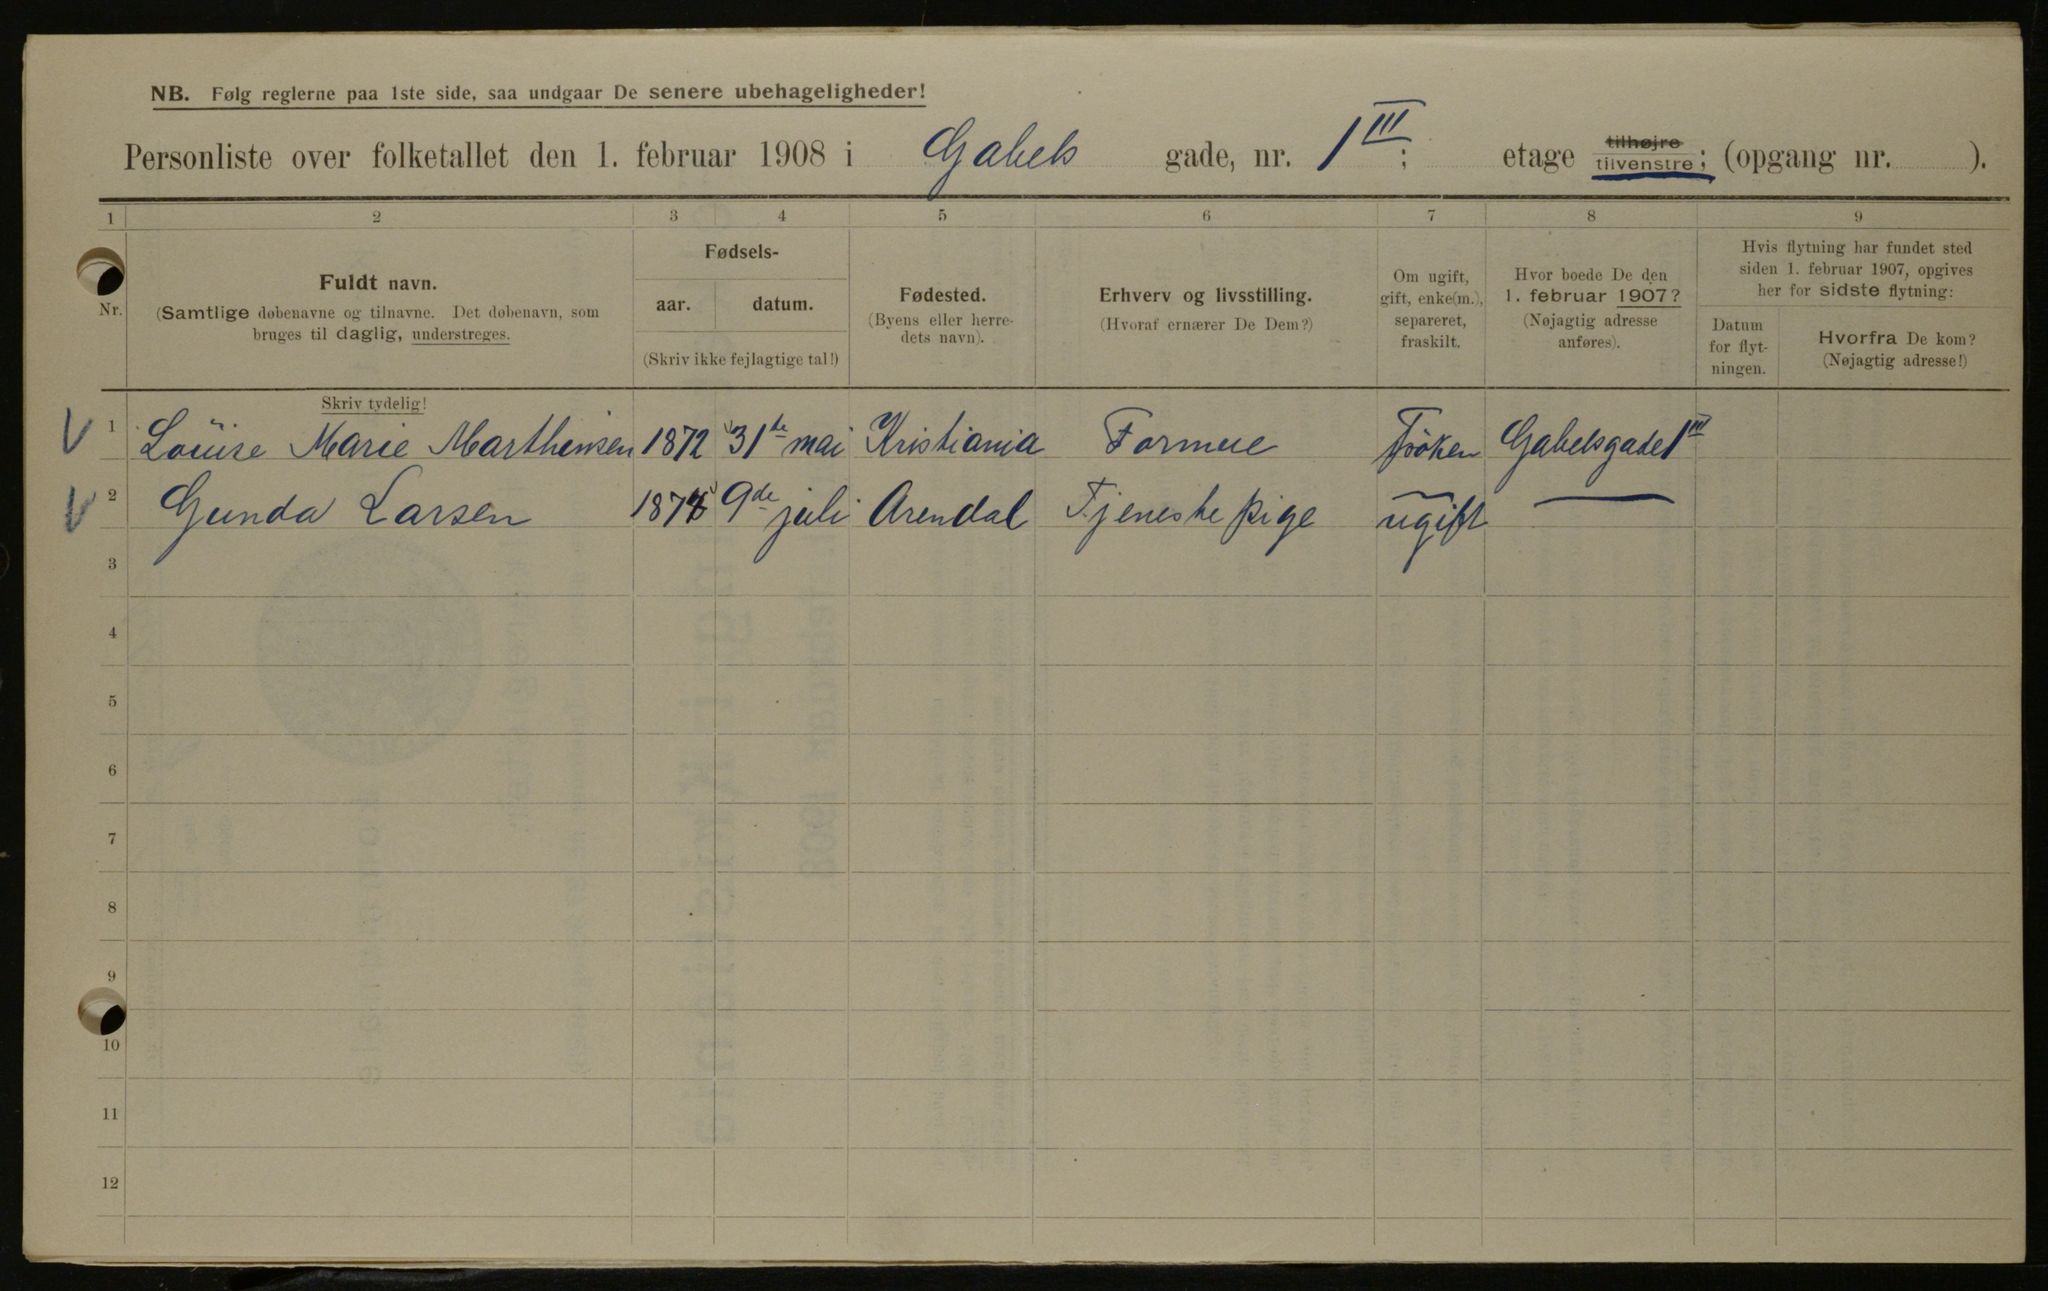 NB. Følg reglerne paa 1ste side, saa undgaar De senere ubehageligheder!
Personliste over folketallet den 1. februar 1908 i Gabels gade, nr. 1 III; etage tilhøjre tilvenstre; (opgang nr. ).
1 2 3 4 5 6 7 8 9
Nr.
Fuldt navn.
(Samtlige døbenavne og tilnavne. Det døbenavn, som
bruges til daglig, understreges.
Fødsels-
aar. datum.
(Skriv ikke fejlagtige tal!)
Fødested.
(Byens eller herre-
dets navn).
Erhverv og livsstilling.
(Hvoraf ernærer De Dem?)
Om ugift,
gift, enke(m.),
separeret,
fraskilt.
Hvor boede De den
1. februar 1907?
(Nøjagtig adresse
anføres).
Hvis flytning har fundet sted
siden 1. februar 1907, opgives
her for sidste flytning:
Datum
for flyt-
ningen.
Hvorfra De kom?
(Nøjagtig adresse!)
Skriv tydelig!
V 1 Louise Marie Marthinsen 1872 31de mai Kristiania Formue Fröken Gabelsgade 1 III
V 2 Gunda Larsen 9de juli Arendal Tjeneste pige ugift —
3
4
5
6
7
8
9
10
11
12